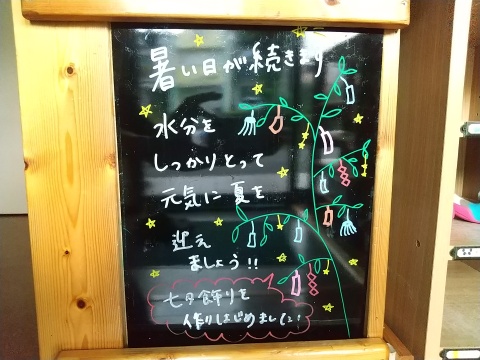 暑い日が続きます
水分を
しっかりとって
元気に夏を
迎え
ましょう!!
七夕飾りを
作りはじめました!